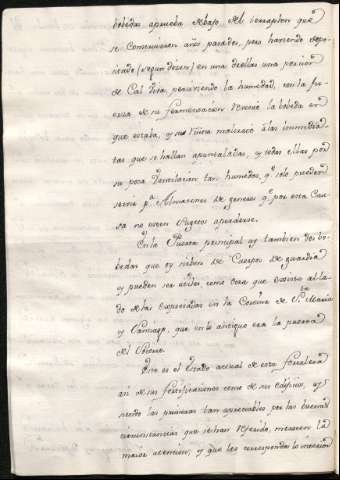 bobedas aprueba debajo del terraplen que
se construieron años pasados, pero haviendo depo
sitado (segun dizen) en una de ellas una porcion
de Cal Viva, percibiendo la humedad, con la fu
erza de su fermentacion rebentó la bobeda en
que estaba, y su ruina maltrató à las immedia
tas que se hallan apuntaladas, y todas ellas por
su poca ventilacion tan humedas, qe. solo pueden
servir pa. Almazenes de generos qe. por esta Cau
sa no esten sugetos a perderse.
En la Puerta principal ay tambien dos bo
bedas que oy sirben de Cuerpo de guardia
y pueden ser utiles como otra que existe al la
do de las expresadas en la Cortina de Sta. Maria
y Santiago, que en lo antiguo era la puerta
del Socorro.
Este es el Estado actual de esta fortaleza
asi de sus fortificaciones como de sus edificios, y
siendo las primeras tan apreciables por las buenas
circunstancias que se han referido, merecen la
maior atencion, y que les corresponda lo interior